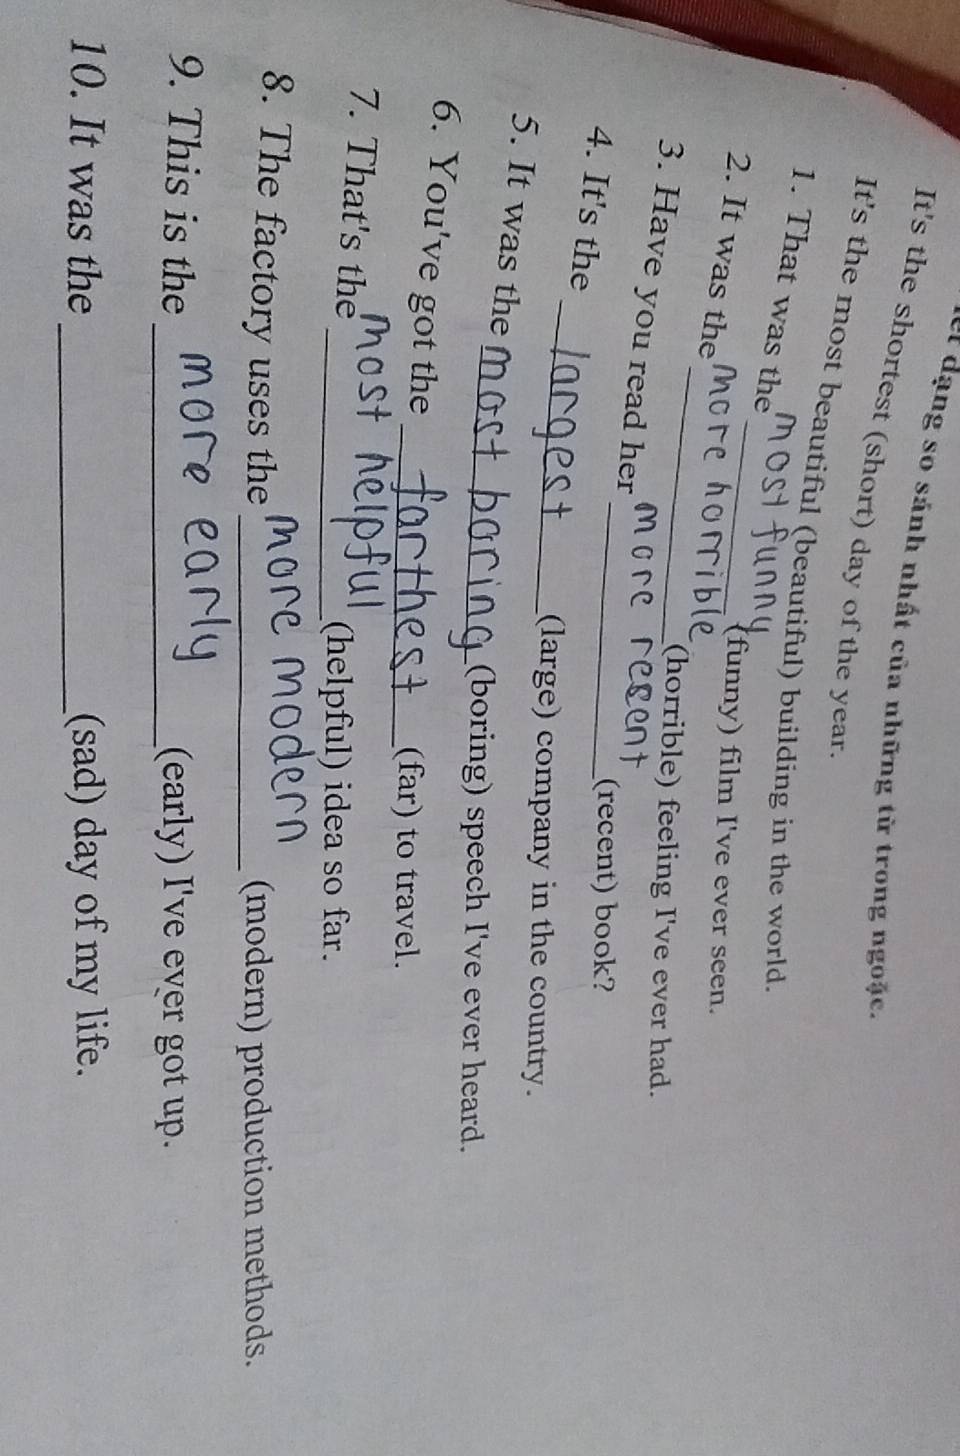 dạng so sánh nhất của những từ trong ngoặc.
It's the shortest (short) day of the year.
It's the most beautiful (beautiful) building in the world.
1. That was the most funny (funny) film I've ever seen.
2. It was the more horrible (horrible) feeling I've ever had.
3. Have you read her more resent (recent) book?
4. It's the largest (large) company in the country.
5. It was the most boring (boring) speech I've ever heard.
6. You've got the farthest (far) to travel.
7. That's the most helpful (helpful) idea so far.
8. The factory uses the more modern (modern) production methods.
9. This is the more early (early) I've ever got up.
10. It was the ____________ (sad) day of my life.